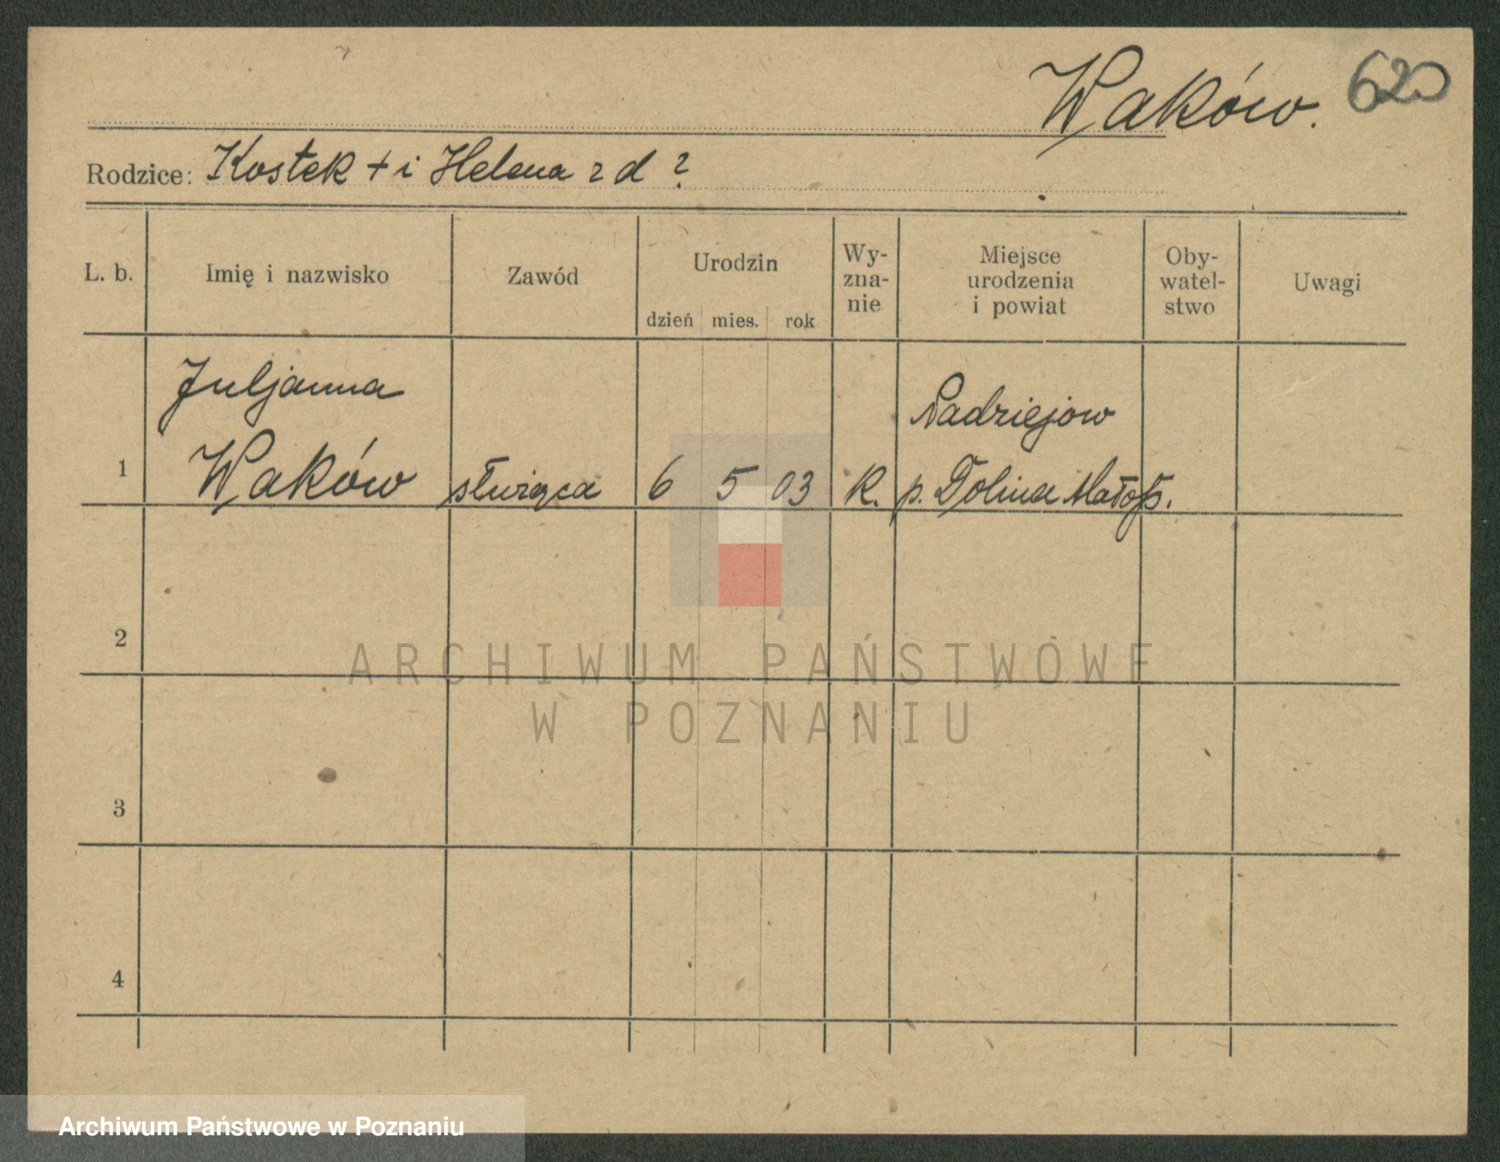 Waków. 620
Rodzice: Kostek + i Helena z d ?
L. b. Imię i nazwisko Zawód Urodzin Wy-
zna-
nie Miejsce
urodzenia
i powiat Oby-
watel-
stwo Uwagi
dzień mies. rok
Juljanna Nadziejow
1 Waków służąca 6 5 03 k. p. Dolina Małop.
2
ARCHIWUM PAŃSTWOWE
W POZNANIU
3
4
Archiwum Państwowe w Poznaniu